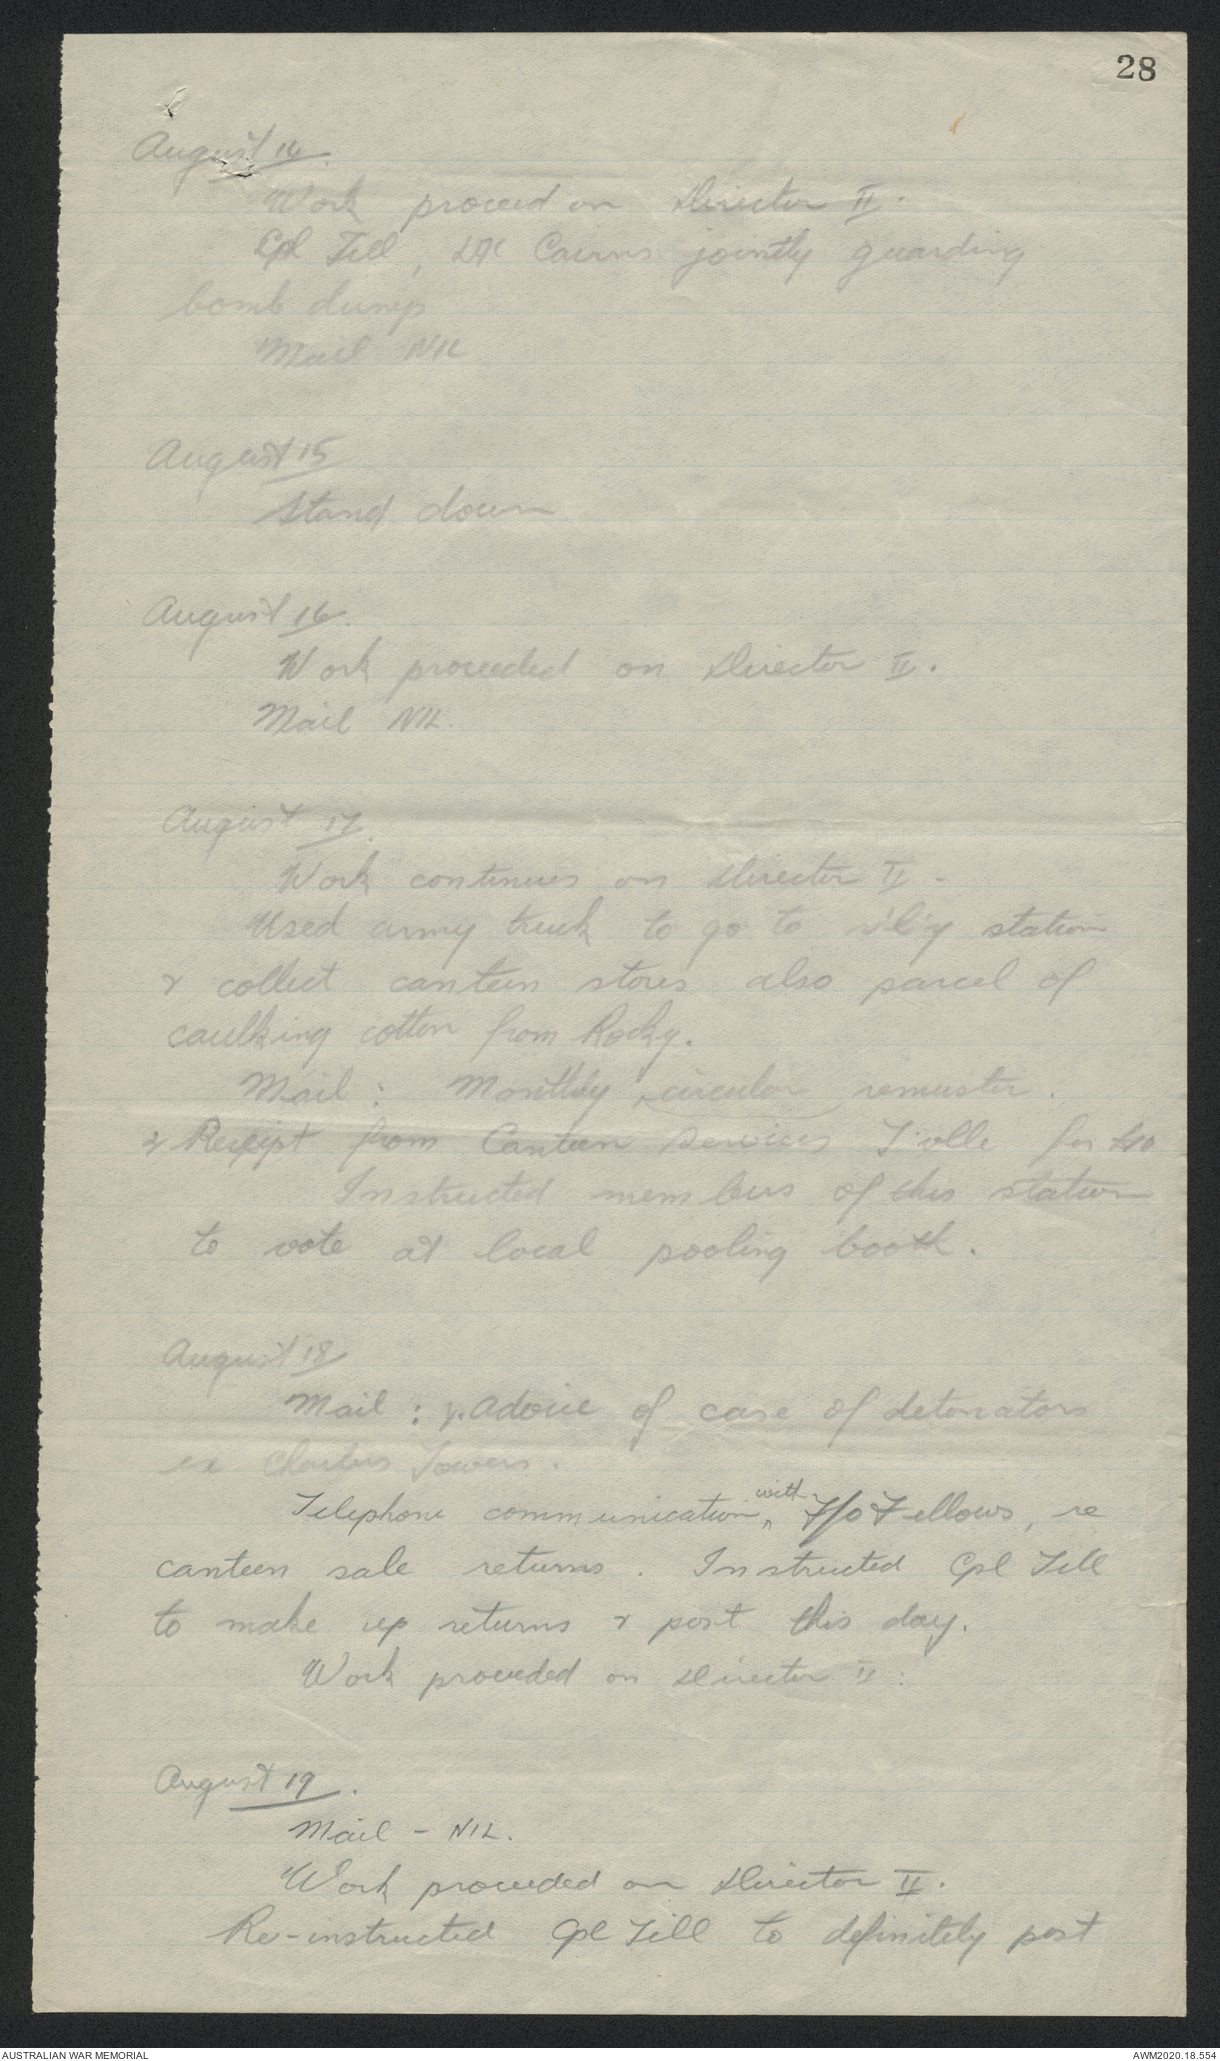 28
August 14.
Work proceed on Director II.
Cpl Till, LAC Cairns jointly guarding
bomb dump
Mail NIL
August 15
Stand down
August 16.
Work proceeded on Director II.
Mail NIL.
August 17.
Work continues on Director II -
Used army truck to go to r'l'y station
& collect canteen stores also parcel of
caulking cotton from Rocky.
Mail: Monthly circular remuster.
& Receipt from Canteen Services T'ville for £10
Instructed members of this station
to vote at local pooling booth.
August 18
Mail: Advice of case of detonators
ex Charters Towers.
Telephone communication with F/O Fellows, re
canteen sale returns. Instructed Cpl Till
to make up returns & post this day.
Work proceeded on Director II.
August 19.
Mail - NIL.
Work proceeded on Director II.
Re-instructed Cpl Till to definitely post
AUSTRALIAN WAR MEMORIAL
AWM2020.18.554